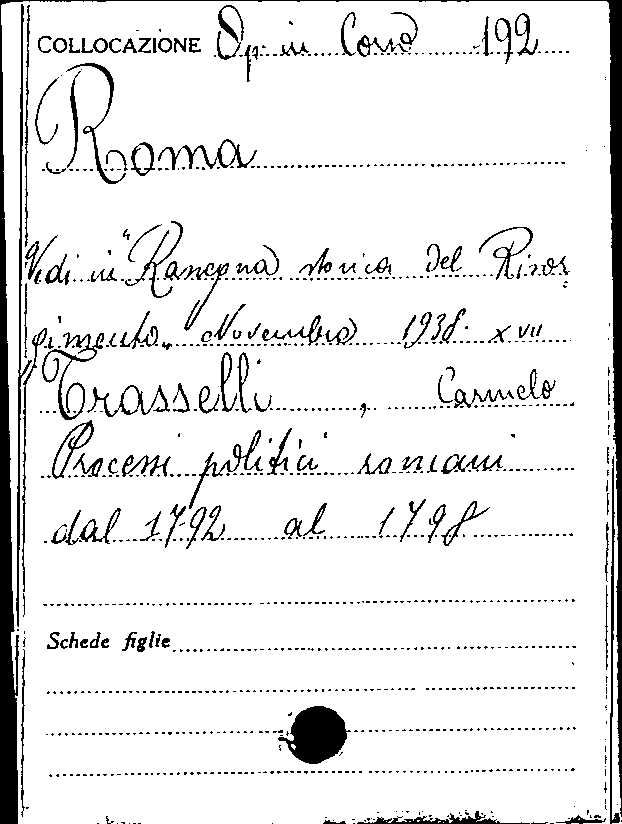 COLLOCAZIONE Op. in Corso 192
Roma
Vedi in "Rassegna storica del Risor
gimento" Novembre 1938. XVII
Trasselli, Carmelo
Processi politici romani
dal 1792 al 1798
Schede figlie